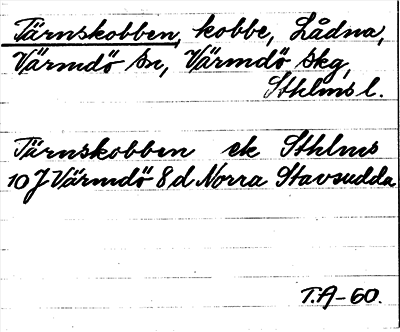 Tärnskobben, kobbe, Lådna,
Värmdö sn, Värmdö skg,
Sthlms l.
Tärnskobben ek Sthlms
10J Värmdö 8d Norra Stavsudda
T.A-60.